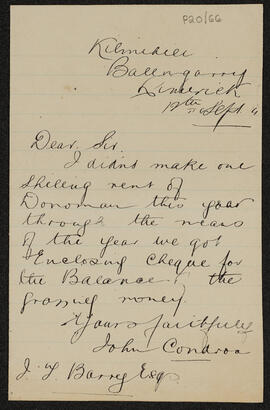 P20/66
Kilmihill
Ballingarry
Limerick
12th Sept
Dear Sir.
I didnt make one
Shilling rent of
Donoman this year
through the means
of the year we got
Enclosing Cheque for
the Balance the
grassing money
Yours faithfully
John Condron
J. Barry Esq.